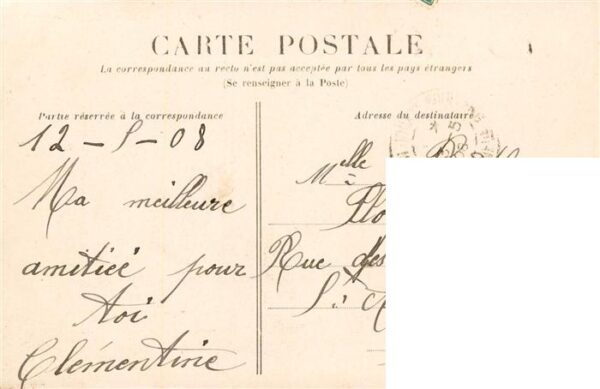 CARTE POSTALE
La correspondance au recto n'est pas acceptée par tous les pays étrangers
(Se renseigner à la Poste)
Partie réservée à la correspondance
Adresse du destinataire
12 - 5 - 08
Ma meilleure
amitiéé pour
toi
Clémentine
Melle
Rue des